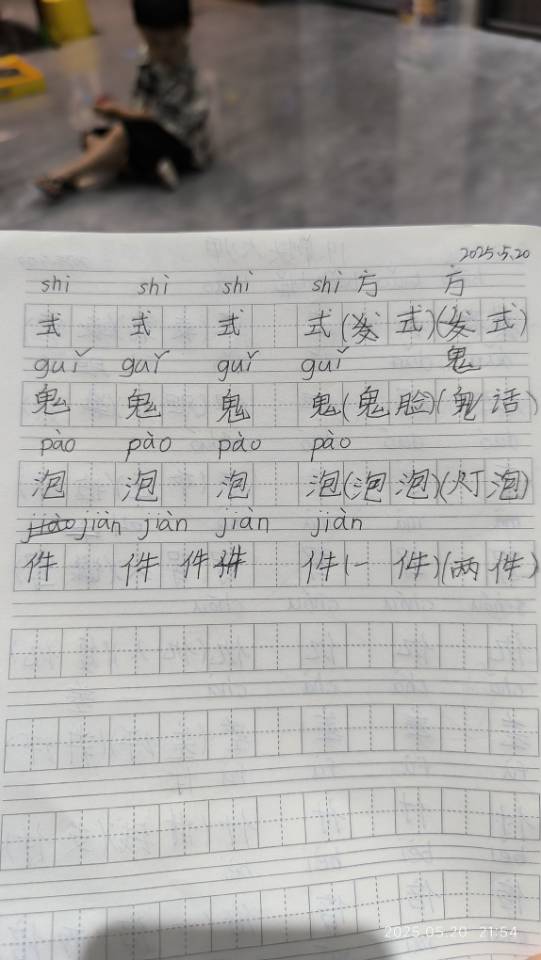 2025.5.20
shì shì shì shì 方 方
式 式 式 式(发 式)(发 式)
guǐ guǐ guǐ guǐ 鬼
鬼 鬼 鬼 鬼(鬼 脸)(鬼 话)
pào pào pào pào
泡 泡 泡 泡(泡 泡)(灯 泡)
jiào jiàn jiàn jiàn jiàn
件 件 件 件 件(一 件)(两 件)
2025.05.20 21:54